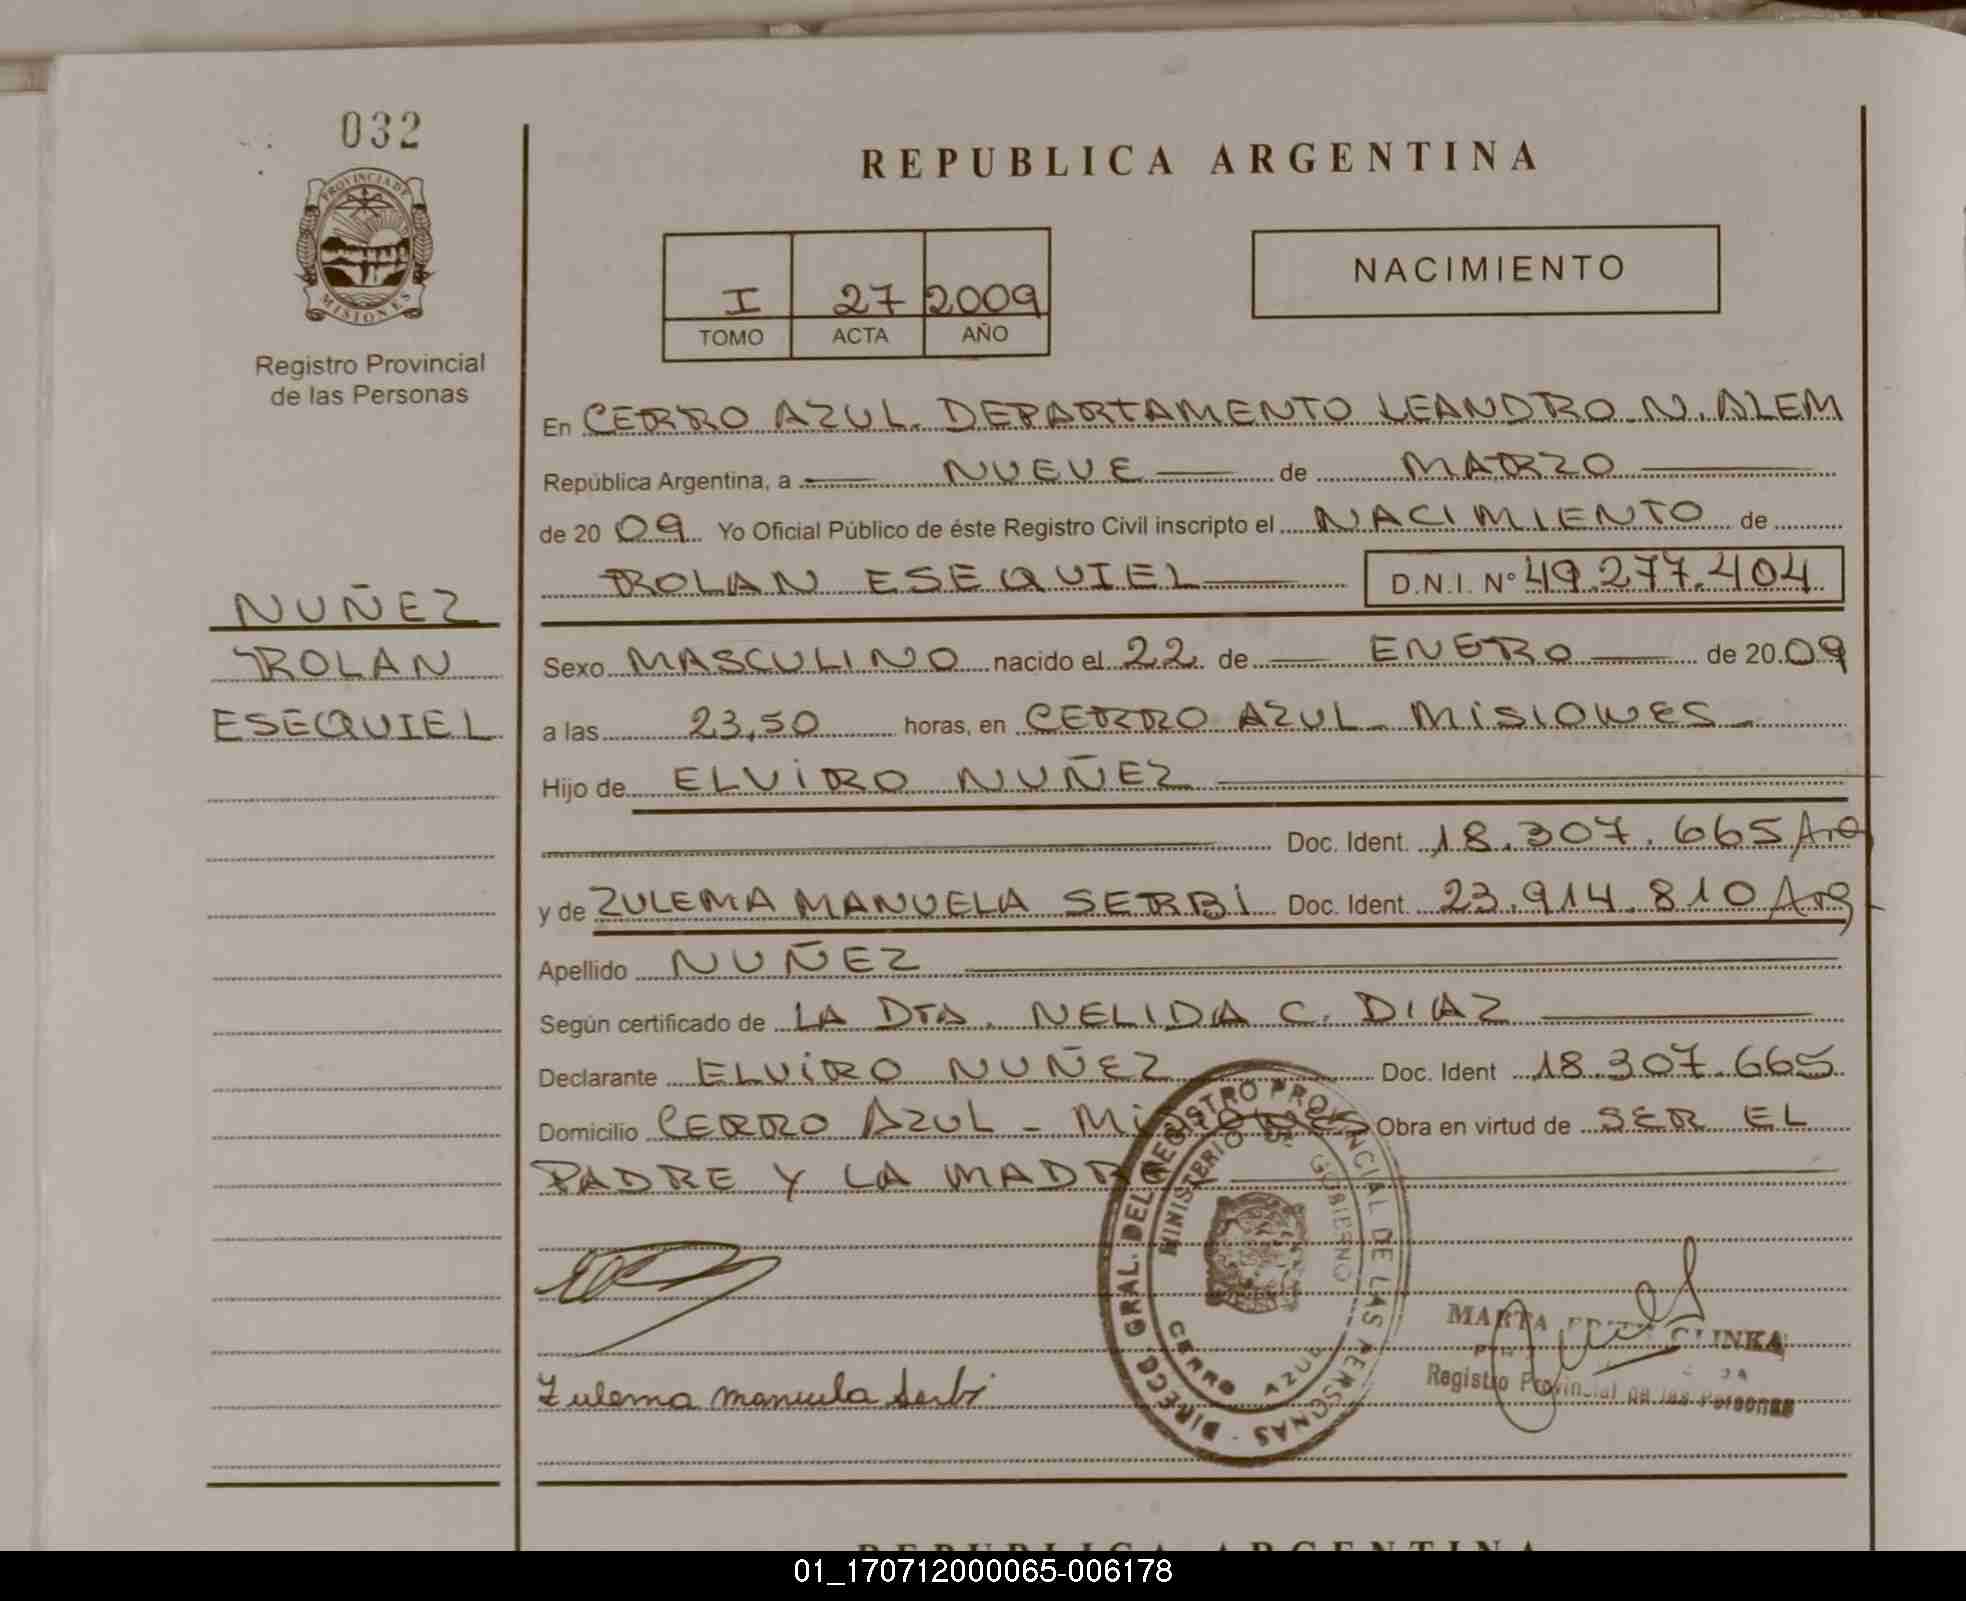 032
PROVINCIA DE
MISIONES
Registro Provincial
de las Personas
REPUBLICA ARGENTINA
I 27 2009
TOMO ACTA AÑO
NACIMIENTO
En CERRO AZUL. DEPARTAMENTO LEANDRO N. ALEM
República Argentina, a NUEVE de MARZO
de 2009 Yo Oficial Público de éste Registro Civil inscripto el NACIMIENTO de
ROLAN ESEQUIEL D.N.I. Nº 49.277.404
NUÑEZ
ROLAN
ESEQUIEL
Sexo MASCULINO nacido el 22 de ENERO de 2009
a las 23,50 horas, en CERRO AZUL - MISIONES -
Hijo de ELVIRO NUÑEZ
Doc. Ident. 18.307.665 Arg
y de ZULEMA MANUELA SERBI Doc. Ident. 23.914.810 Arg
Apellido NUÑEZ
Según certificado de LA DRA. NELIDA C. DIAZ
Declarante ELVIRO NUÑEZ Doc. Ident 18.307.665
Domicilio CERRO AZUL - MISIONES Obra en virtud de SER EL
PADRE Y LA MADRE
DIRECC GRAL. DEL REGISTRO PROVINCIAL DE LAS PERSONAS
MINISTERIO DE GOBIERNO
CERRO AZUL
Zulema Manuela Serbi
MARTA GLINKA
Registro Provincial de las Personas
REPUBLICA ARGENTINA
01_170712000065-006178